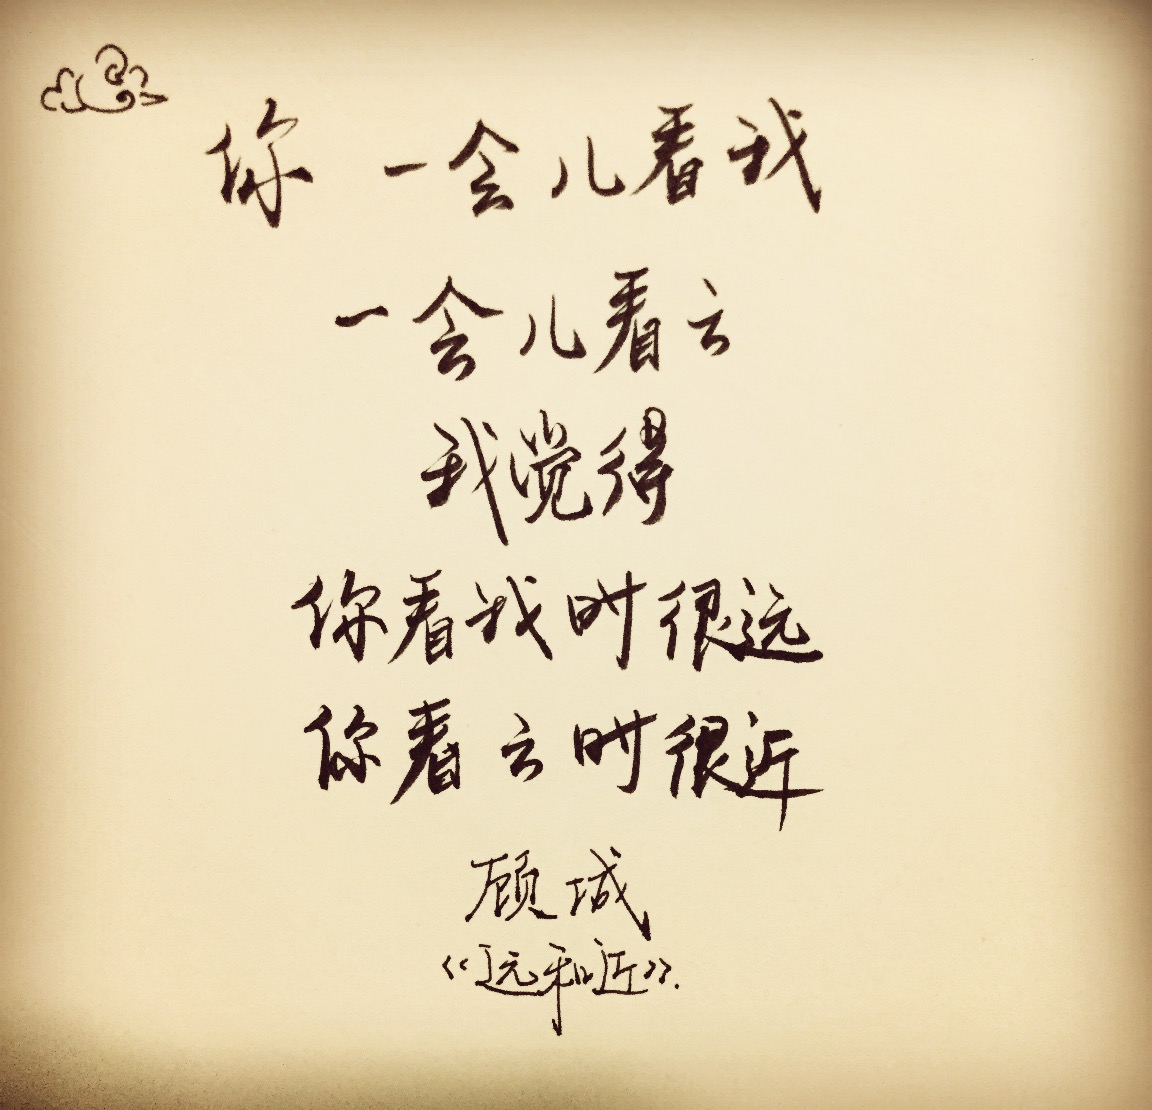 你 一会儿看我
一会儿看云
我觉得
你看我时很远
你看云时很近
顾城
《远和近》.